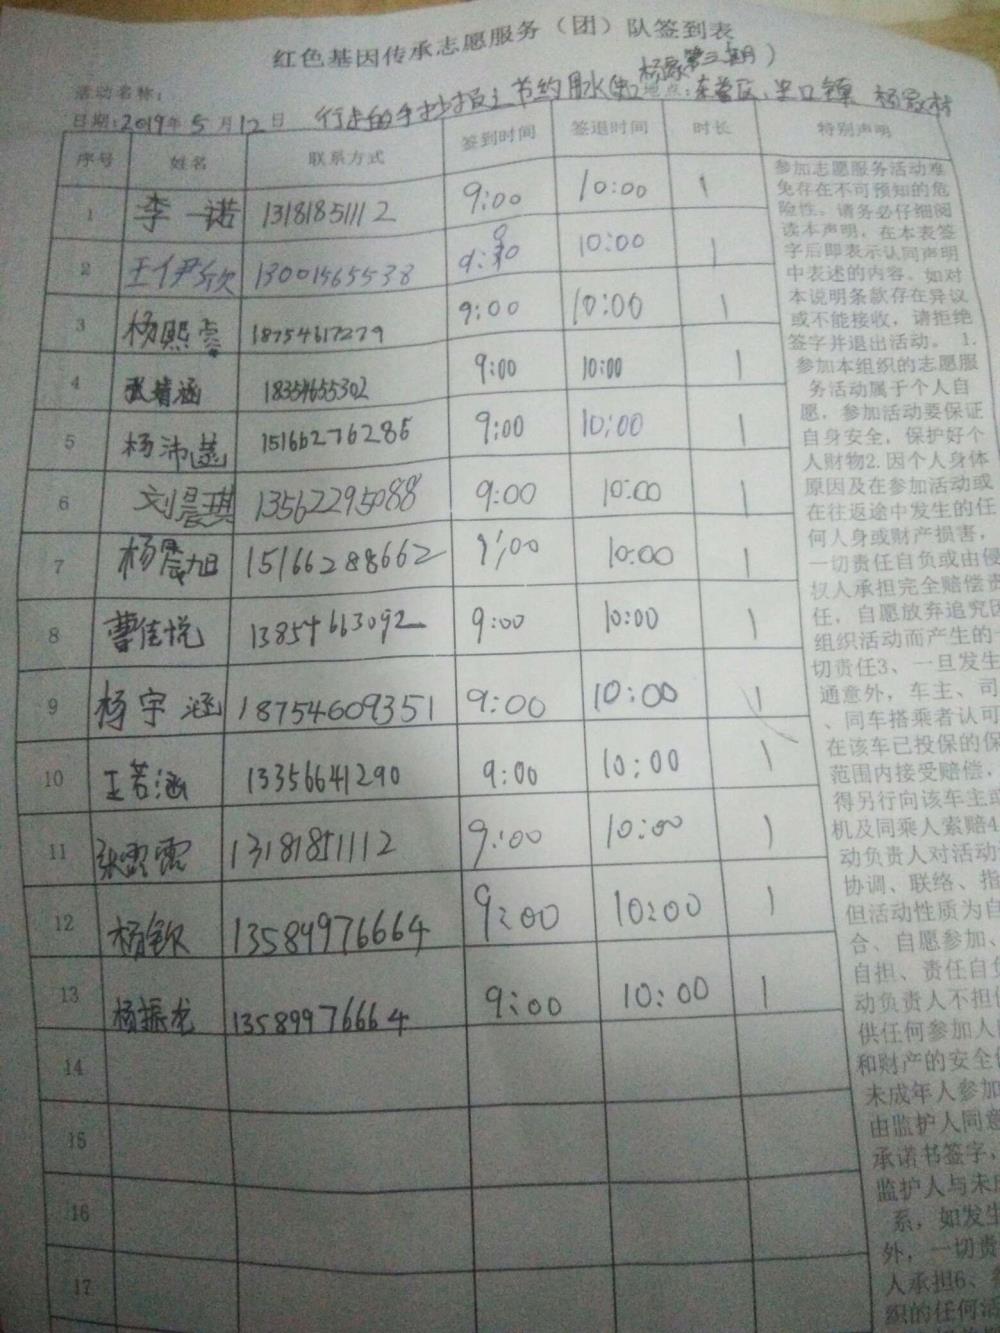 红色基因传承志愿服务（团）队签到表
活动名称：
日期：2019年5月12日 行走的手抄报之节约用水 杨家第三期） 地点：东营区、史口镇 杨家村
序号 姓名 联系方式 签到时间 签退时间 时长 特别声明
1 李一诺 13181851112 9:00 10:00 1
2 王伊欣 13001565538 9:00 10:00 1
3 杨熙 18754617279 9:00 10:00 1
4 张婧涵 18354655302 9:00 10:00 1
5 杨沛 15166276286 9:00 10:00 1
6 刘晨琪 13562295088 9:00 10:00 1
7 杨晨旭 15166288662 9:00 10:00 1
8 曹佳悦 13854663092 9:00 10:00 1
9 杨宇涵 18754609351 9:00 10:00 1
10 王若涵 13356641290 9:00 10:00 1
11 张雷雷 13181851112 9:00 10:00 1
12 杨钦 13589976664 9:00 10:00 1
13 杨振龙 13589976664 9:00 10:00 1
14
15
16
17
参加志愿服务活动难
免存在不可预知的危
险性。请务必仔细阅
读本声明，在本表签
字后即表示认同声明
中表述的内容。如对
本说明条款存在异议
或不能接收，请拒绝
签字并退出活动。 1.
参加本组织的志愿服
务活动属于个人自
愿，参加活动要保证
自身安全，保护好个
人财物2.因个人身体
原因及在参加活动或
在往返途中发生的任
何人身或财产损害，
一切责任自负或由侵
权人承担完全赔偿责
任，自愿放弃追究因
组织活动而产生的一
切责任3、一旦发生
通意外，车主、司
、同车搭乘者认可
在该车已投保的保
范围内接受赔偿，
得另行向该车主或
机及同乘人索赔4
动负责人对活动
协调、联络、指
但活动性质为自
合、自愿参加、
自担、责任自负
动负责人不担保
供任何参加人
和财产的安全
未成年人参加
由监护人同意
承诺书签字，
监护人与未成
系，如发生
外，一切责
人承担6、
织的任何活